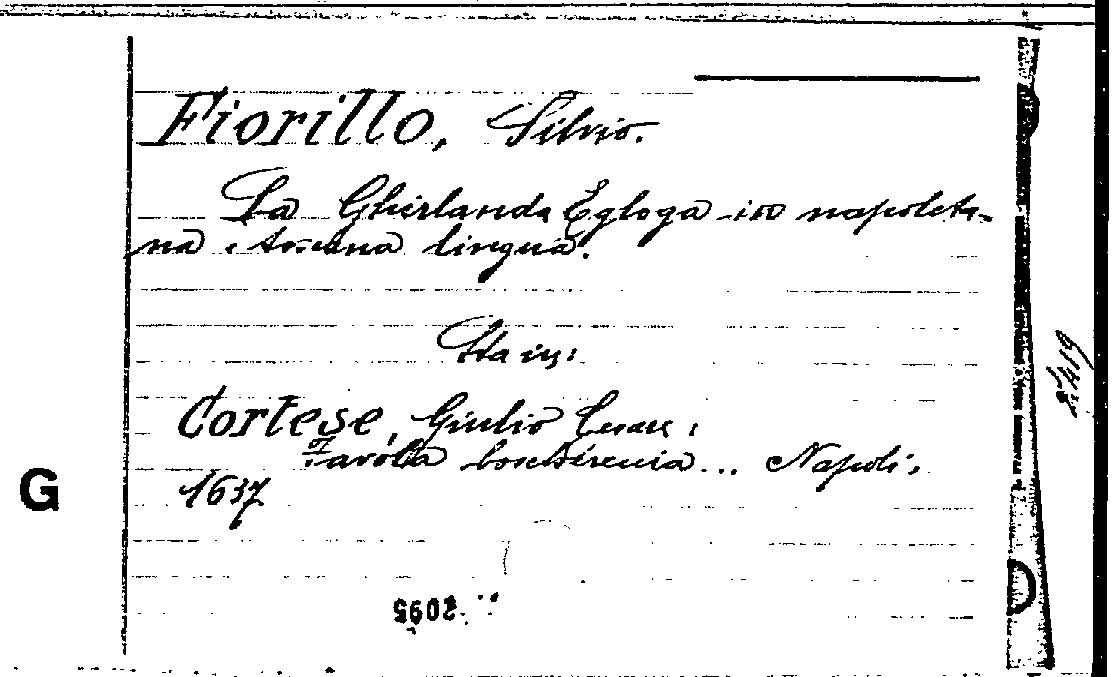 Fiorillo, Silvio.
La Ghirlanda Egloga in napoleta-
na e toscana lingua.
Sta in:
Cortese, Giulio Cesare:
Favola boschereccia... Napoli,
1637
G